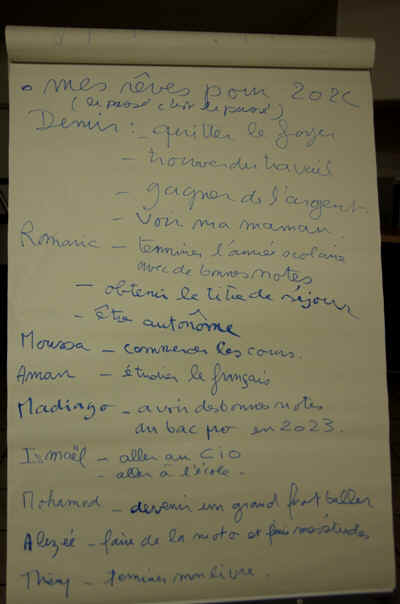 • mes rêves pour 202
(le passé c'est le passé)
Demir : - quitter le foyer
- trouver du travail
- gagner de l'argent.
- Voir ma maman.
Romaric - terminer l'année scolaire
avec de bonnes notes
- obtenir le titre de séjour
- être autonôme
Moussa - commencer les cours.
Aman - étudier le français
Madiago - avoir des bonnes notes
du bac pro en 2023.
Ismaël - aller au CIO
- aller à l'école.
Mohamed - devenir un grand footballer
Alezée - faire de la moto et finir mes études
Thény - terminer mon livre.